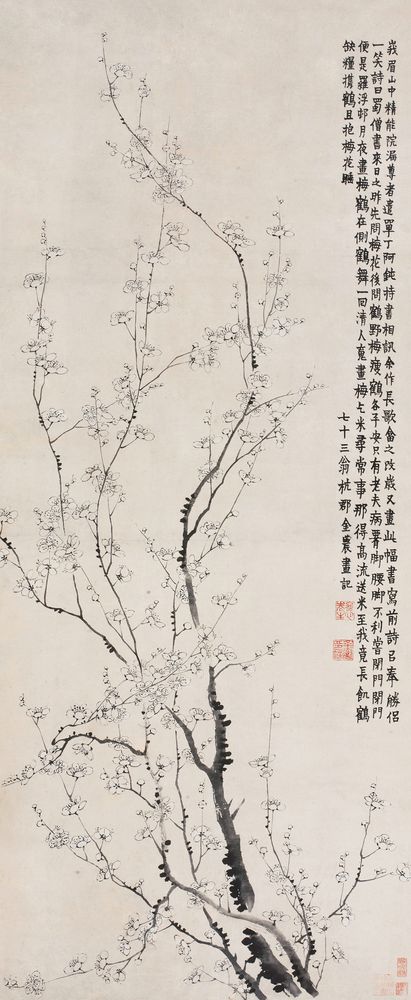 峩眉山中精能院漏尊者遣單丁阿鈍持書相訊余作長歌畣之改歲又畫此幅書寫前詩已奉勝侶
一笑詩曰蜀僧書來日之昨先問梅花後問鶴野梅瘦鶴各平安只有老夫病腰脚腰脚不利嘗閉門閉門
便是羅浮邨月夜畫梅鶴在側鶴舞一回清人魂畫梅乞米尋常事那得高流送米至我竟長飢鶴
缺糧攜鶴且抱梅花睡
七十三翁杭郡金農畫記